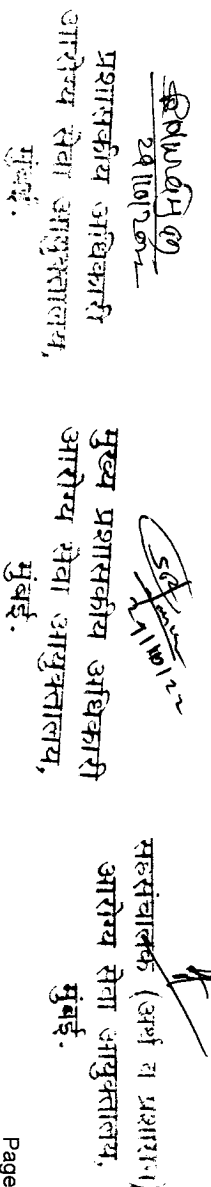 29/10/2022
प्रशासकीय अधिकारी
आरोग्य सेवा आयुक्तालय,
मुंबई.
21/10/22
मुख्य प्रशासकीय अधिकारी
आरोग्य सेवा आयुक्तालय,
मुंबई.
सहसंचालक (अर्थ व प्रशासन)
आरोग्य सेवा आयुक्तालय,
मुंबई.
Page